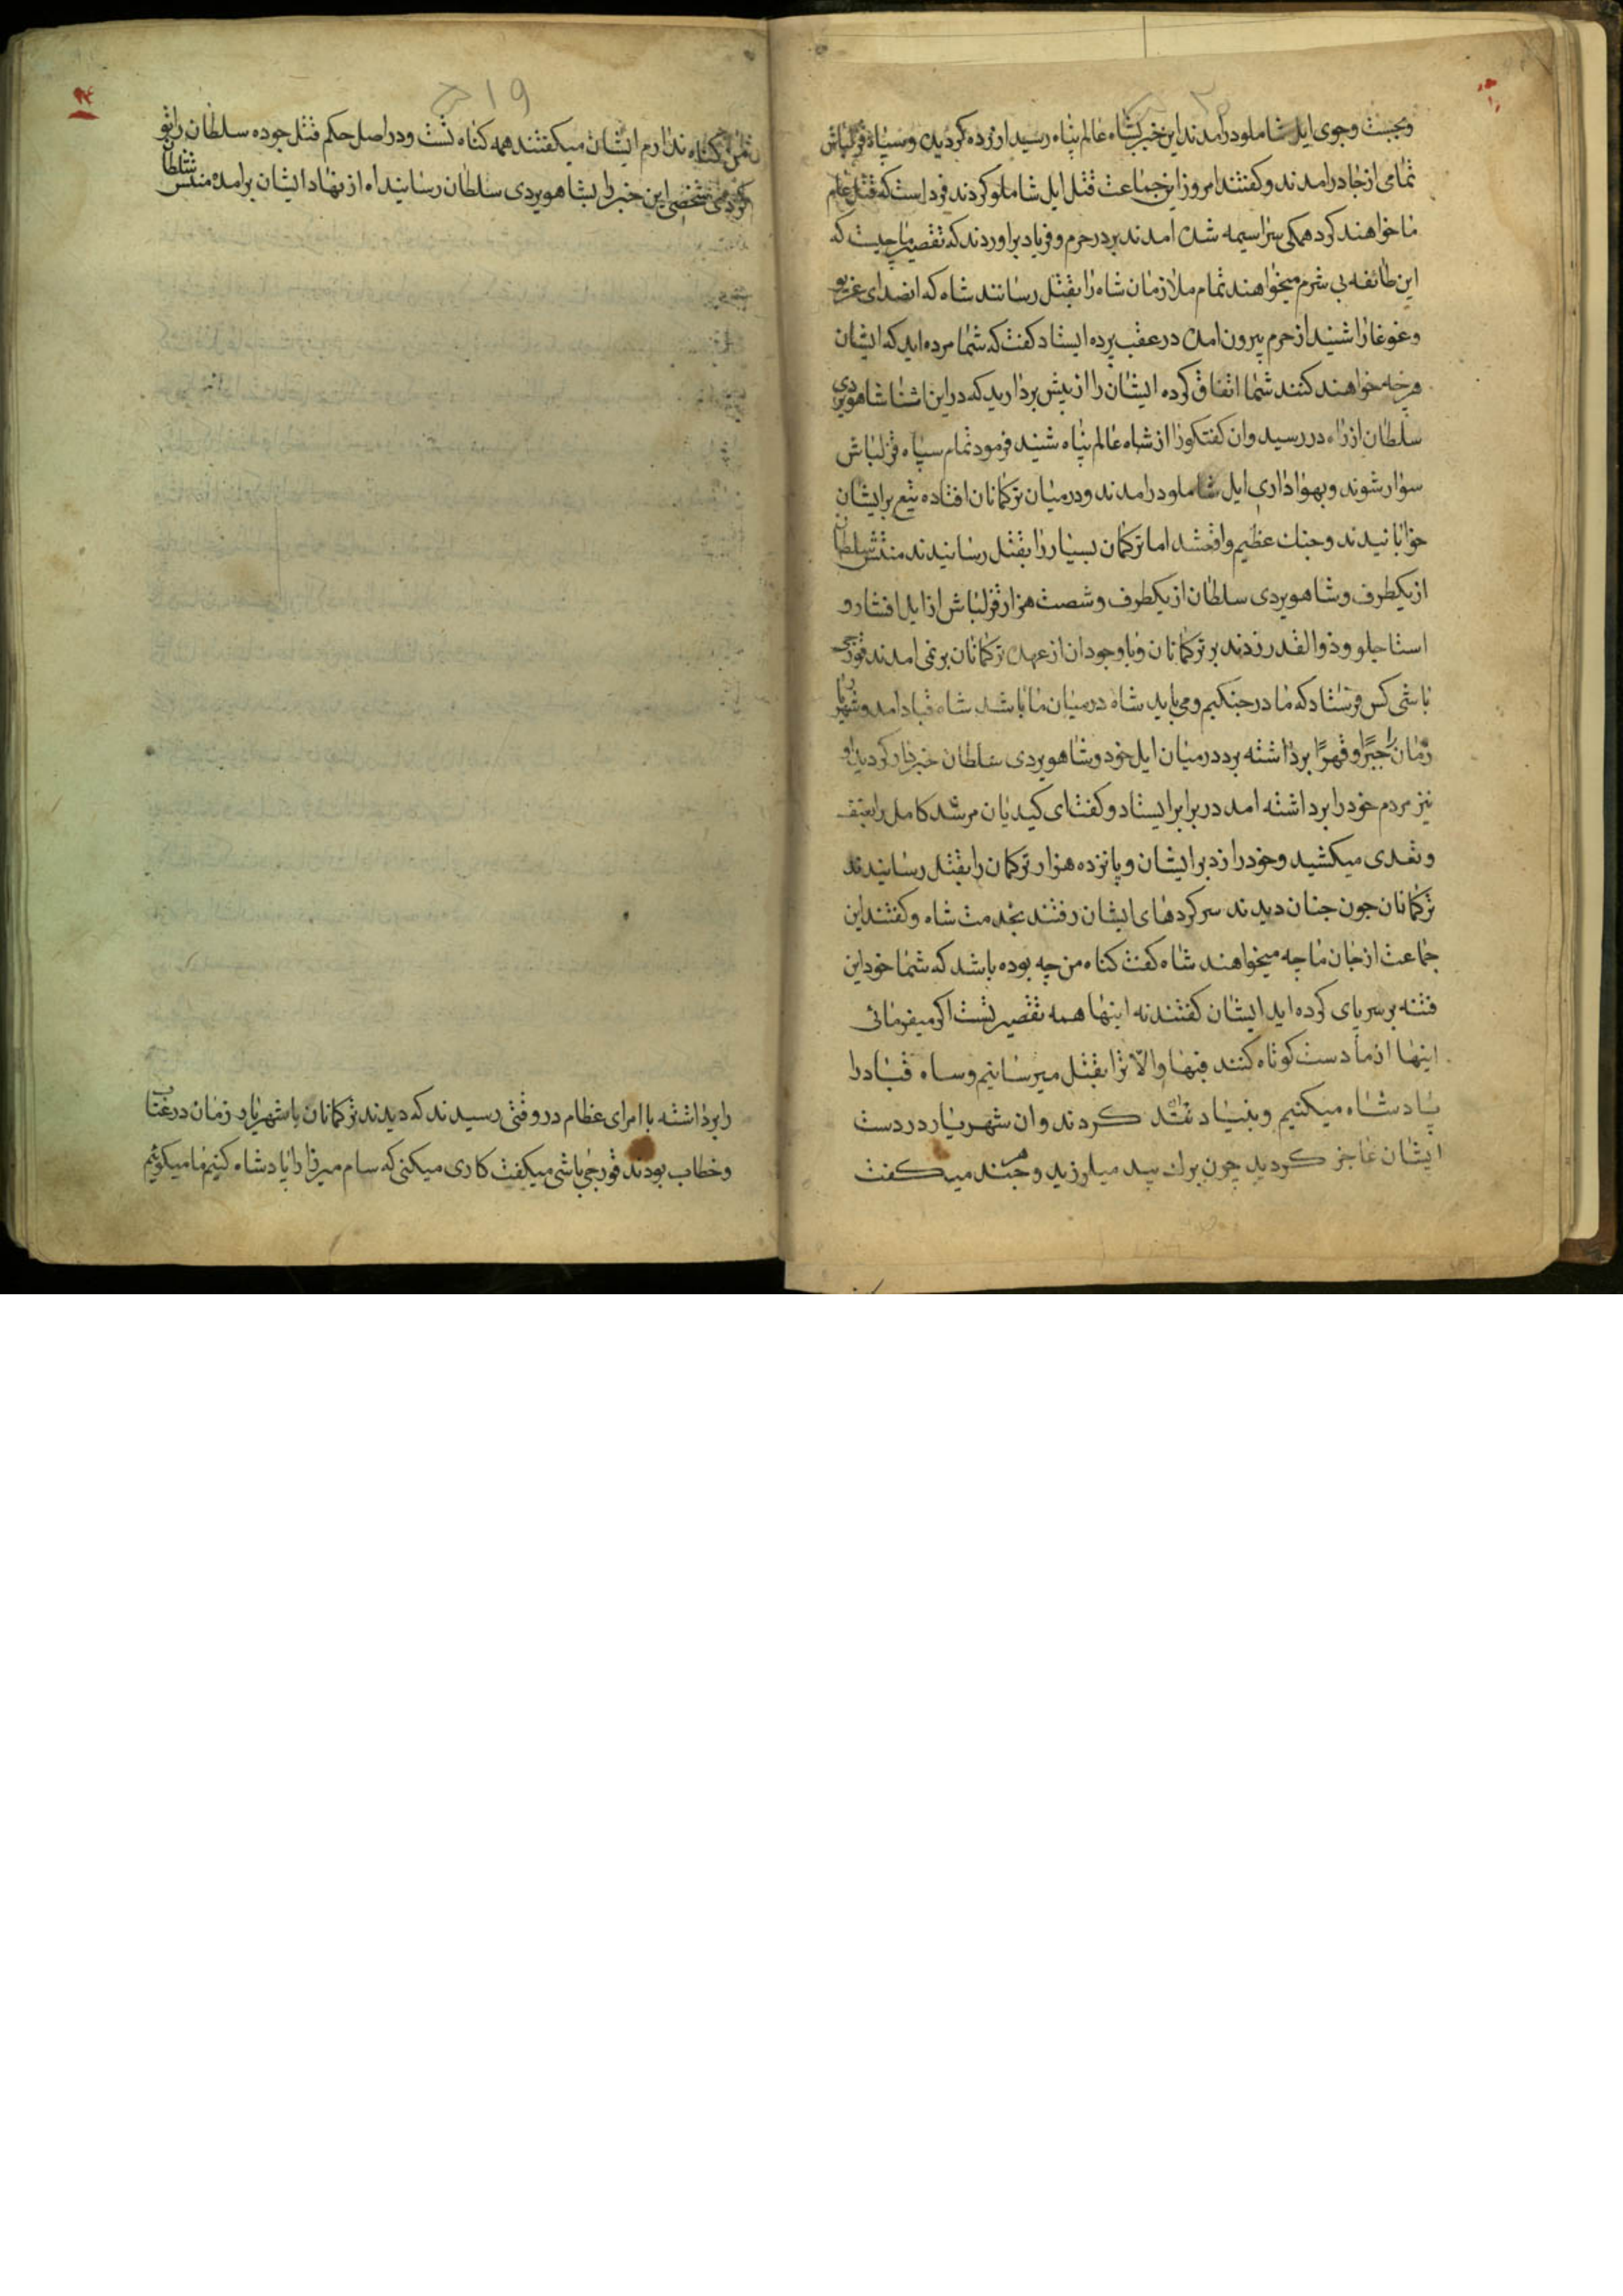 وبجست وجوی ایل شاملو درامدند این خبر بشاه عالم پناه رسید ازرده کردید وسپاه قزلباش
تمامی از جا درامدند و کفتند امروز این جماعت قتل ایل شاملو کردند فرداست که قتل عام
ما خواهند کرد همکی سراسیمه شده امدند بر در حرم و فریاد براوردند که تقصیر ما چیست که
این طائفه بی شرم میخواهند تمام ملازمان شاه را بقتل رسانند شاه که انصدای غریو
وغوغا را شنید از حرم بیرون امده در عقب پرده ایستاد کفت که شما مرده اید که ایشان
هرچه خواهند کنند شما اتفاق کرده ایشان را از پیش بردارید که در این اثنا شاهویردی
سلطان از راه در رسید وان کفتکو را از شاه عالم پناه شنید فرمود تمام سپاه قزلباش
سوار شوند و بهواداری ایل شاملو درامدند و درمیان ترکمانان افتاده تیغ بر ایشان
خوابانیدند و جنک عظیم واقع شد اما ترکمان بسیار را بقتل رسانیدند منتش سلطان
از یکطرف و شاهویردی سلطان از یکطرف و شصت هزار قزلباش از ایل افشار و
استاجلو و ذوالقدر زدند بر ترکمانان و با وجود ان از عهده ترکمانان بر نمی امدند قورجی
باشی کس فرستاد که ما در جنکیم و می باید شاه درمیان ما باشد شاه قباد امد و شهریار
زمان را جبرًا و قهرًا برداشته برد درمیان ایل خود و شاهویردی سلطان خبردار کردید او
نیز مردم خود را برداشته امد در برابر ایستاد و کفت ای کیدیان مرشد کامل را بعنف
و تعدی میکشید و خود را زد بر ایشان و پانزده هزار ترکمان را بقتل رسانیدند
ترکمانان چون چنان دیدند سرکردهای ایشان رفتند بخدمت شاه و کفتند این
جماعت از جان ما چه میخواهند شاه کفت کناه من چه بوده باشد که شما خود این
فتنه بر سر پای کرده اید ایشان کفتند نه اینها همه تقصیر تست اکر میفرمائی
اینها از ما دست کوتاه کنند فبها والّا ترا بقتل میرسانیم و ساه قباد را
پادشاه میکنیم و بنیاد کردند وان شهریار در دست
ایشان عاجز کردید چون برک بید میلرزید و هرچند میکفت
من کناه ندارم ایشان میکفتند همه کناه تست و در اصل حکم قتل جوده سلطان را تو
کردی شخصی این خبر را بشاهویردی سلطان رسانید اه از نهاد ایشان برامده منتش سلطان
را برداشته با امرای عظام در وقتی رسیدند که دیدند ترکمانان با شهریار زمان در عتاب
و خطاب بودند قورجی باشی میکفت کاری میکنی که سام میرزا را پادشاه کنیم ما میکوئیم